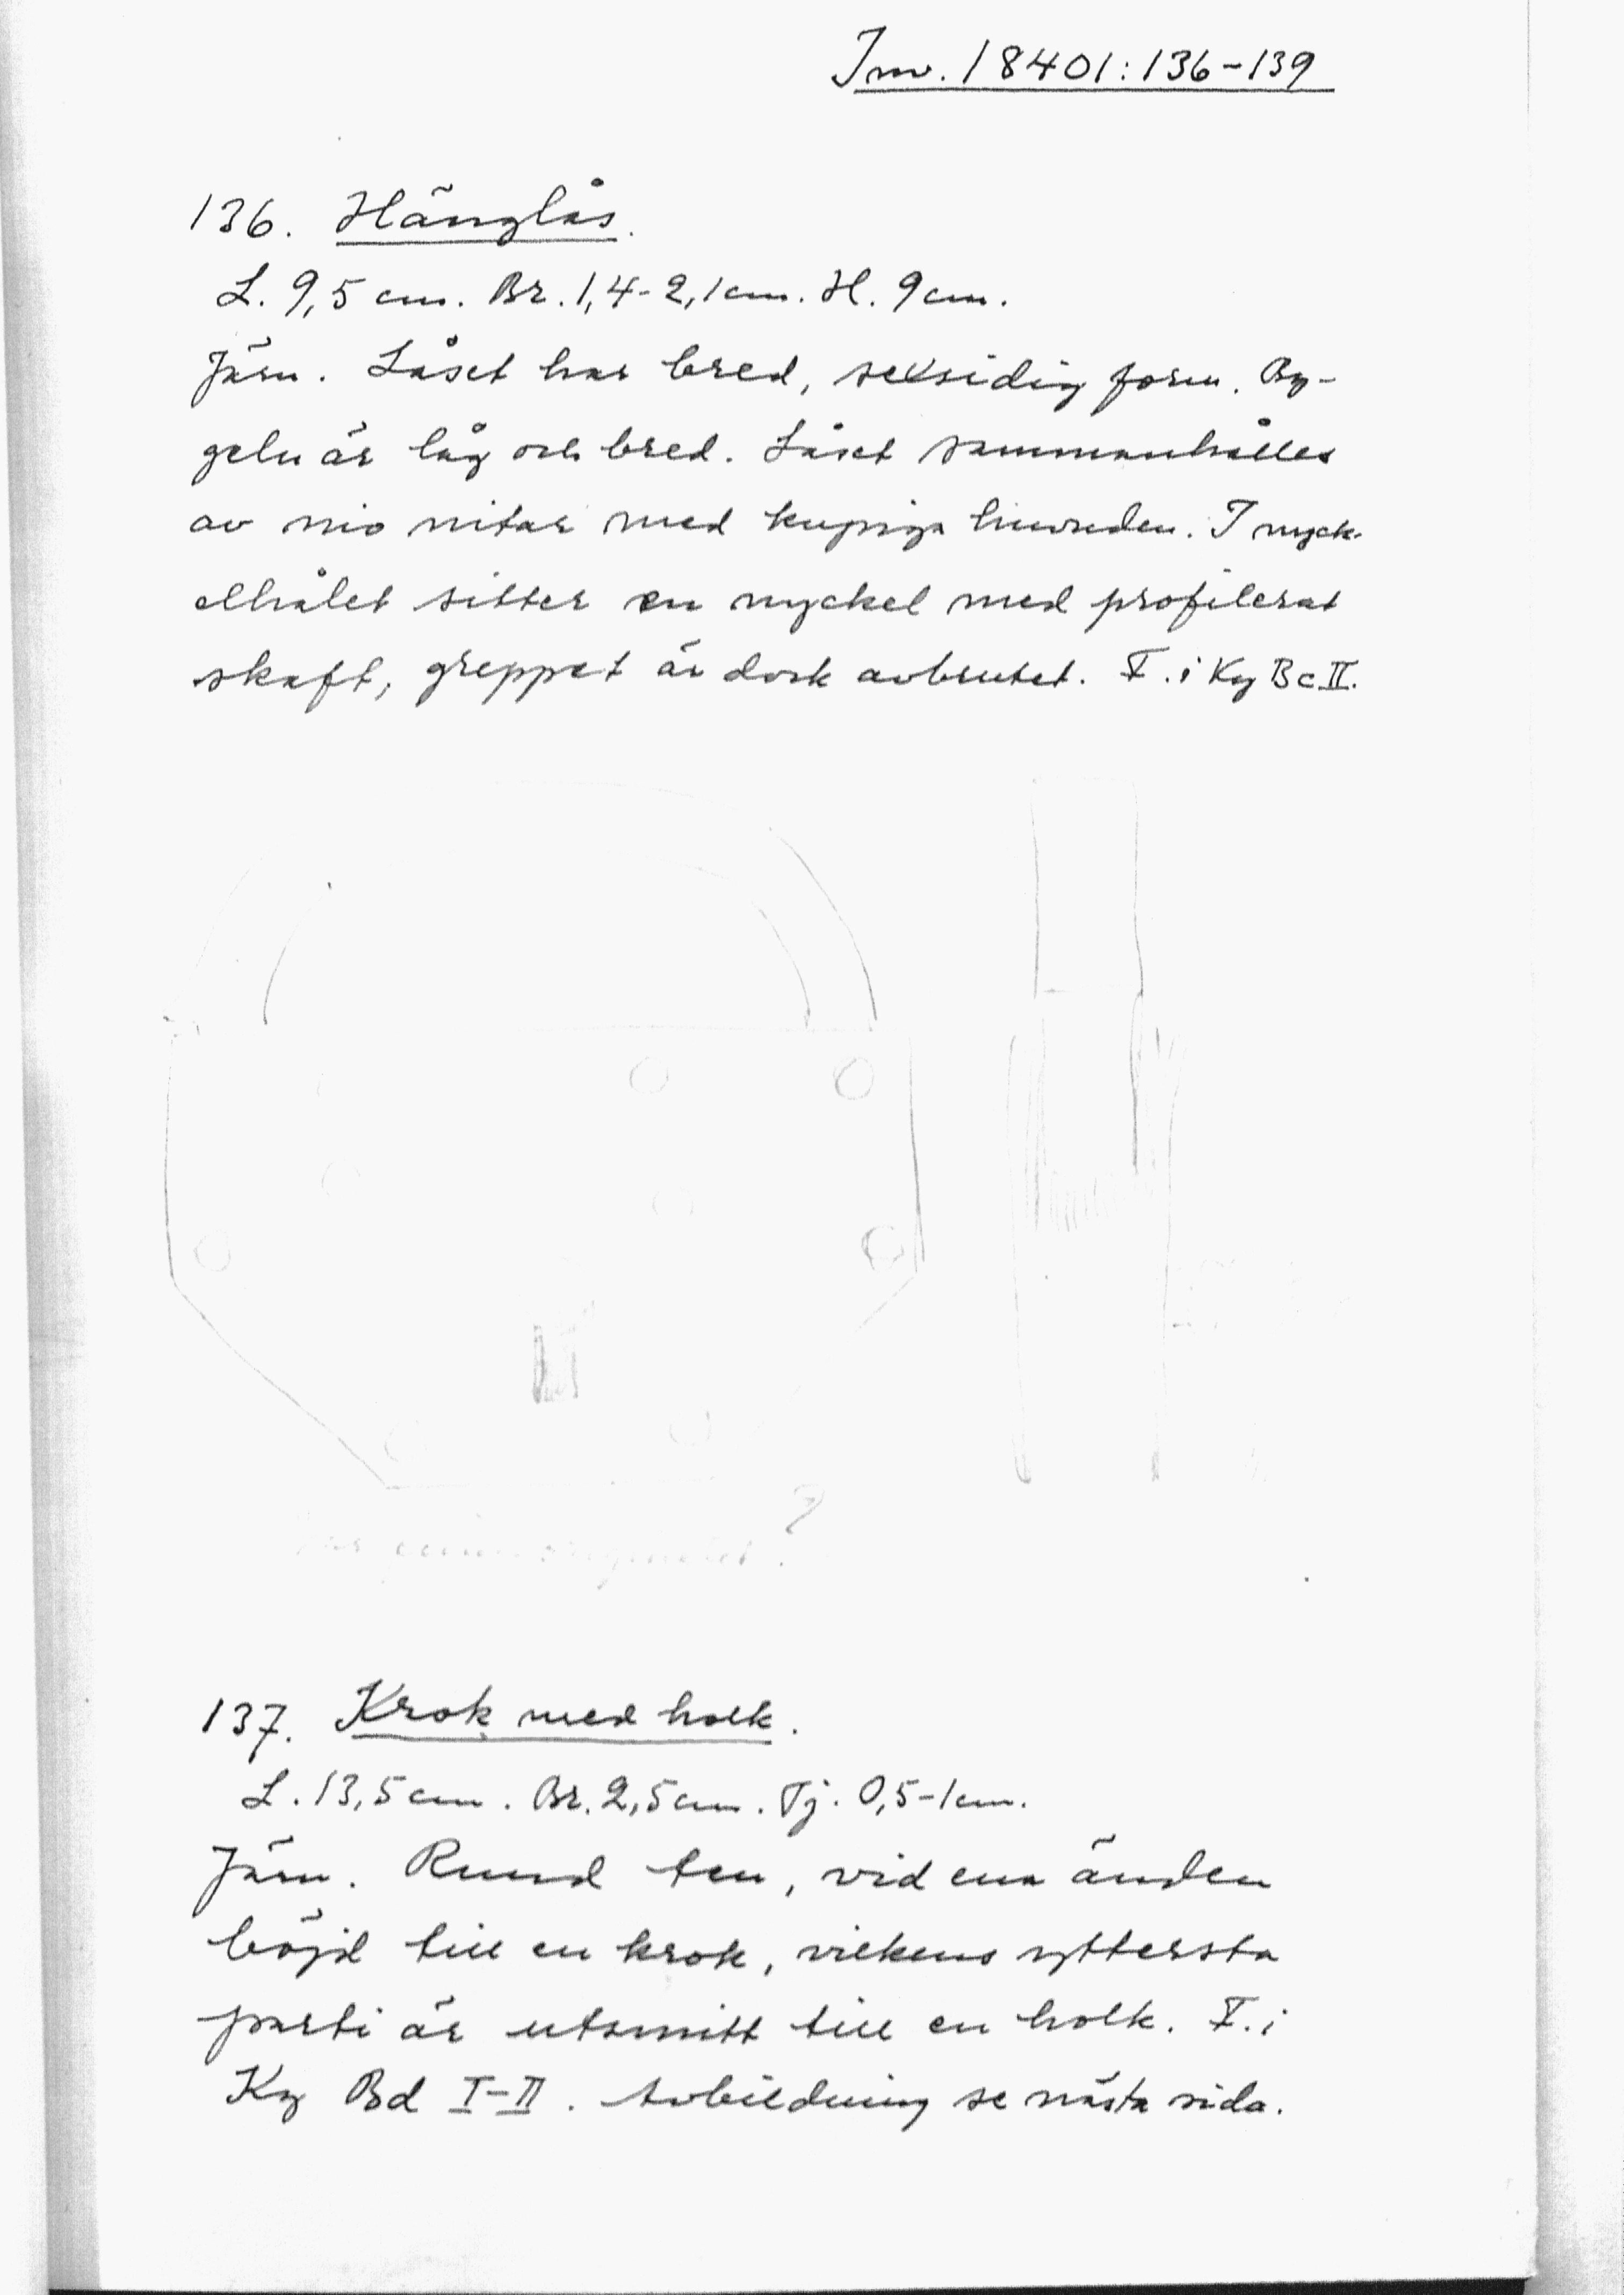 Inv. 18401:136-139
136. Hänglås.
L. 9,5 cm. Br. 1,4-2,1 cm. H. 9 cm.
Järn. Låset har bred, sexsidig form. By-
geln är låg och bred. Låset sammanhålles
av nio nitar med kupiga huvuden. I nyck-
elhålet sitter en nyckel med profilerat
skaft, greppet är dock avbrutet. F. i Kg Bc II.
137. Krok med holk.
L. 13,5 cm. Br. 2,5 cm. Tj. 0,5-1 cm.
Järn. Rund ten, vid ena änden
böjd till en krok, vilkens yttersta
parti är utsmitt till en holk. F. i
Kg Bd I-II. Avbildning se nästa sida.